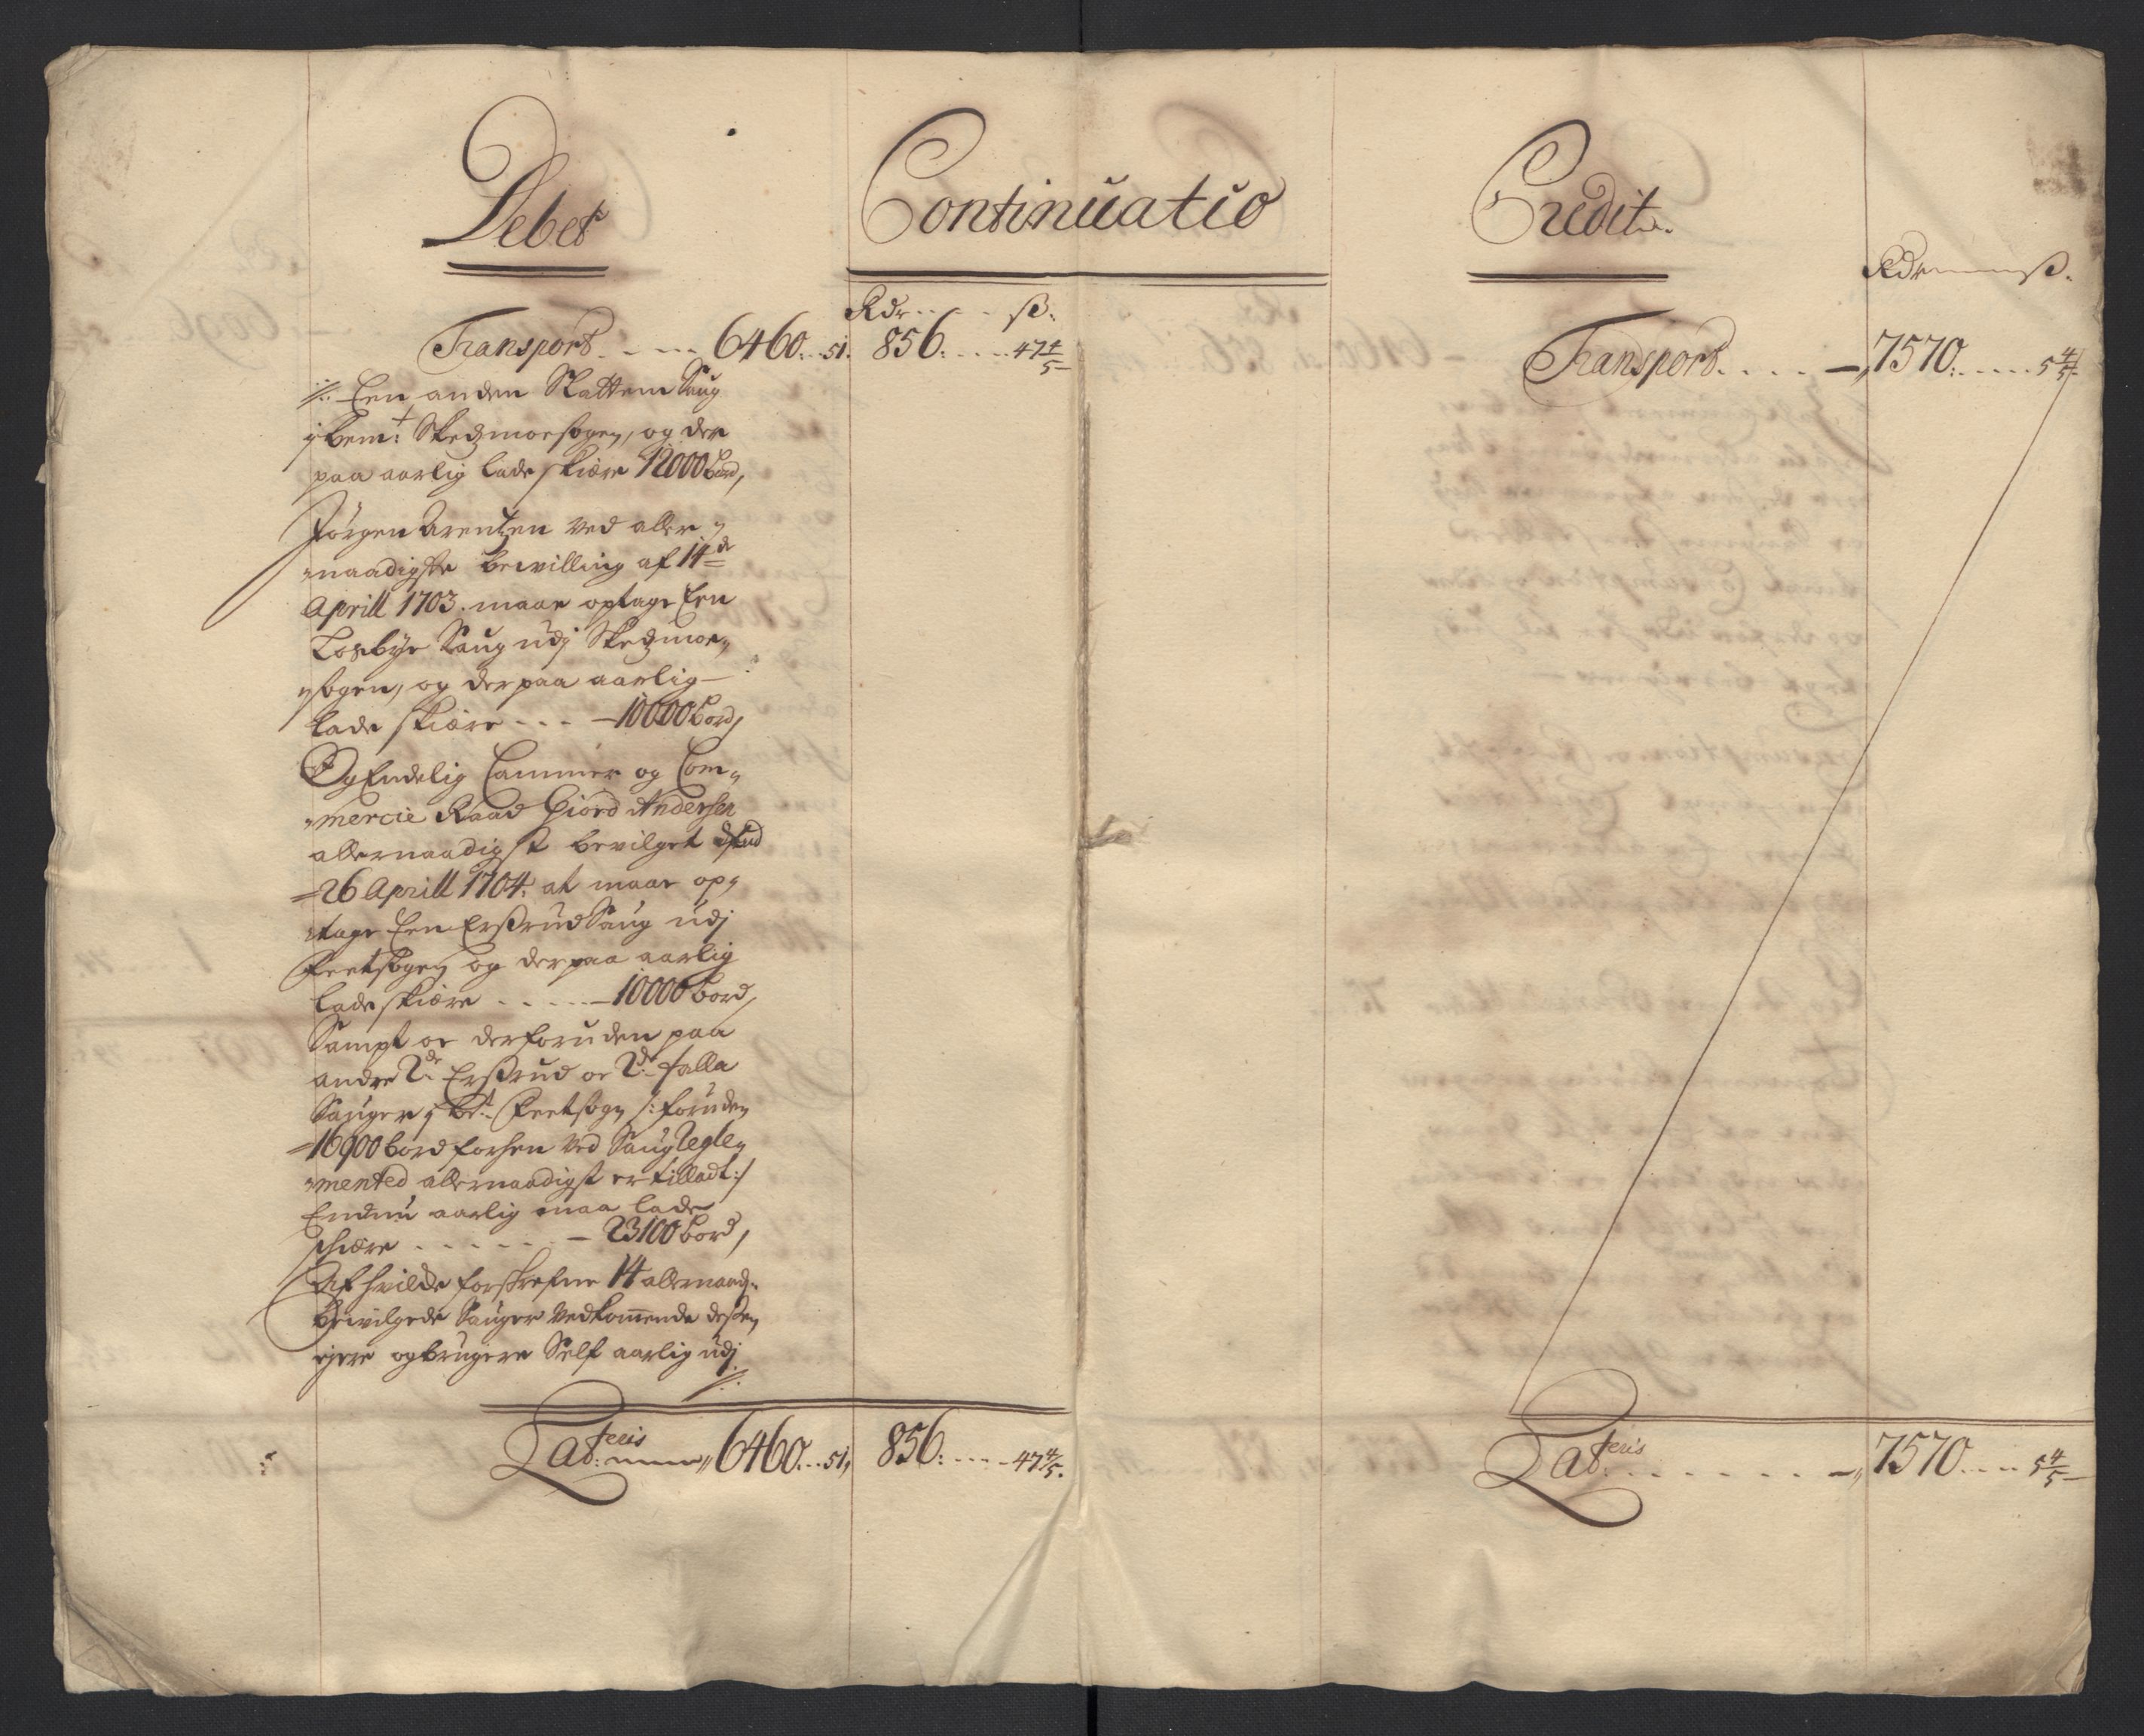 Debet
Continuatio
Credit.
Rdr ß.
Rdr ß.
Transport 6460. 51. 856. 47 4/5
Transport. 7570. 5 4/5
Een anden Skattum Saug
j bemt: Skedsmoe sogen, og der
paa aarlig lade skiære 12000 bord,
Jørgen Arentzen ved aller
naadigste bevilling af 14de
Aprill 1703. maae optage Een
Losbye Saug udj Skedsmoe
sogen, og der paa aarlig
lade skiære - - - 10000 bord,
Og Endelig Cammer og Com
mercie Raad Giord Andersen
allernaadigst bevilget
26 Aprill 1704. at maae op
tage Een Erstrud Saug udj
Feetsogen og der paa aarlig
lade skiære - - - 10000 bord,
Sampt oc derforuden paa
andre 2de Erstrud oc 2de falla
Sauger j bt. Feetsogn /: foruden
16900 bord forhen ved Saug Regle
mented allernaadigst er tilladt :/
Endnu aarlig maa lade
skiære - - - 23100 bord,
Af hvilke forskrefne 14 allernaad:
bevilgede Sauger vedkommende dessen
ejere og brugere Self aarlig udj
Lat:eris 6460. 51, 856. 47 4/5.
Lat:eris 7570. 5 4/5